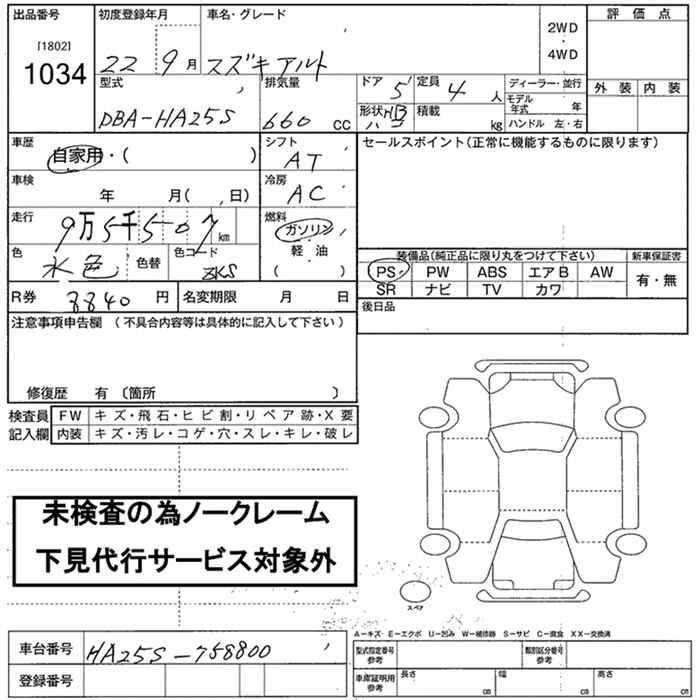 出品番号
[1802]
1034
初度登録年月
22 9月
車名・グレード
スズキアルト
2WD
4WD
評価点
外装 内装
型式
DBA-HA25S
排気量
660 CC
ドア 5
定員 4人
形状 HB
積載 kg
ディーラー・並行
モデル年式 年
ハンドル 左・右
車歴
自家用・( )
シフト
AT
セールスポイント(正常に機能するものに限ります)
車検
年 月( 、日)
冷房
AC
走行
9万5千507km
燃料
ガソリン
軽・油
( )
色
水色
色替
色コード
ZKS
装備品(純正品に限り丸をつけて下さい)
新車保証書
PS PW ABS エアB AW
SR ナビ TV カワ
有・無
R券 8840円
名変期限 月 日
後日品
注意事項申告欄(不具合内容等は具体的に記入して下さい)
修復歴 有〔箇所 〕
検査員
記入欄
FW キズ・飛石・ヒビ割・リペア跡・X要
内装 キズ・汚レ・コゲ・穴・スレ・キレ・破レ
未検査の為ノークレーム
下見代行サービス対象外
スペア
A-キズ E-エクボ U-凹み W-補修跡 S-サビ C-腐食 XX-交換済
車台番号 HA25S-758800
登録番号
型式指定番号
参考
類別区分番号
参考
車庫証明用
参考
長さ cm
幅 cm
高さ cm